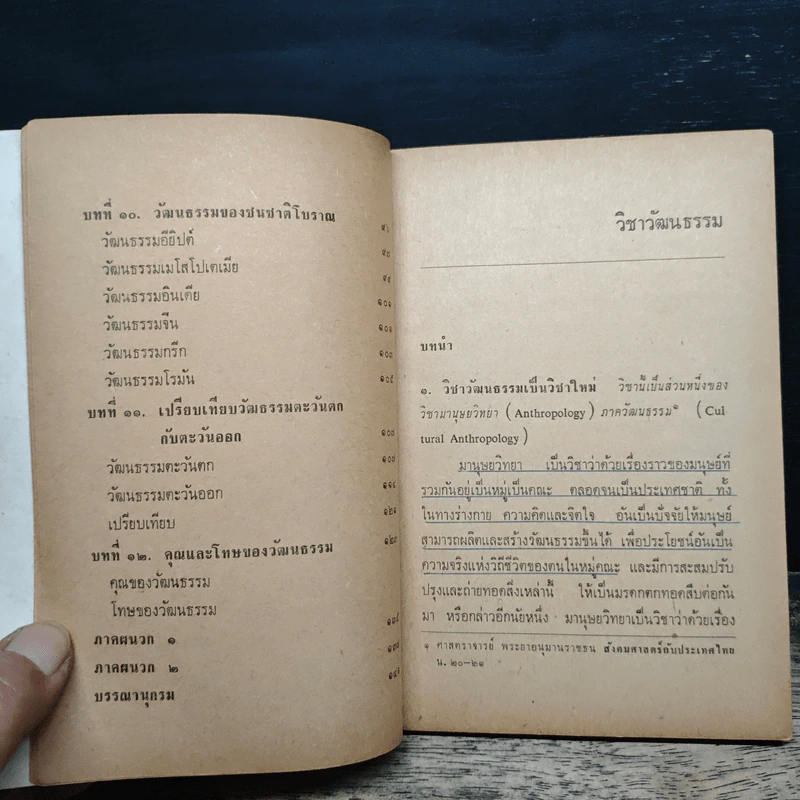 บทที่ ๑๐. วัฒนธรรมของชนชาติโบราณ ๙๖
วัฒนธรรมอียิปต์ ๙๗
วัฒนธรรมเมโสโปเตเมีย ๙๙
วัฒนธรรมอินเดีย ๑๐๑
วัฒนธรรมจีน ๑๐๑
วัฒนธรรมกรีก ๑๐๓
วัฒนธรรมโรมัน ๑๐๕
บทที่ ๑๑. เปรียบเทียบวัฒธรรมตะวันตก
กับตะวันออก ๑๐๗
วัฒนธรรมตะวันตก ๑๐๗
วัฒนธรรมตะวันออก ๑๑๔
เปรียบเทียบ ๑๒๑
บทที่ ๑๒. คุณและโทษของวัฒนธรรม
คุณของวัฒนธรรม
โทษของวัฒนธรรม
ภาคผนวก ๑
ภาคผนวก ๒
บรรณานุกรม
วิชาวัฒนธรรม
บทนำ
๑. วิชาวัฒนธรรมเป็นวิชาใหม่ วิชานี้เป็นส่วนหนึ่งของ
วิชามานุษยวิทยา (Anthropology) ภาควัฒนธรรม๑ (Cul
tural Anthropology)
มานุษยวิทยา เป็นวิชาว่าด้วยเรื่องราวของมนุษย์ที่
รวมกันอยู่เป็นหมู่เป็นคณะ ตลอดจนเป็นประเทศชาติ ทั้ง
ในทางร่างกาย ความคิดและจิตใจ อันเป็นปัจจัยให้มนุษย์
สามารถผลิตและสร้างวัฒนธรรมขึ้นได้ เพื่อประโยชน์อันเป็น
ความจริงแห่งวิถีชีวิตของตนในหมู่คณะ และมีการสะสมปรับ
ปรุงและถ่ายทอดสิ่งเหล่านี้ ให้เป็นมรดกตกทอดสืบต่อกัน
มา หรือกล่าวอีกนัยหนึ่ง มานุษยวิทยาเป็นวิชาว่าด้วยเรื่อง
๑ ศาสตราจารย์ พระยาอนุมานราชธน สังคมศาสตร์กับประเทศไทย
น. ๒๐-๒๑